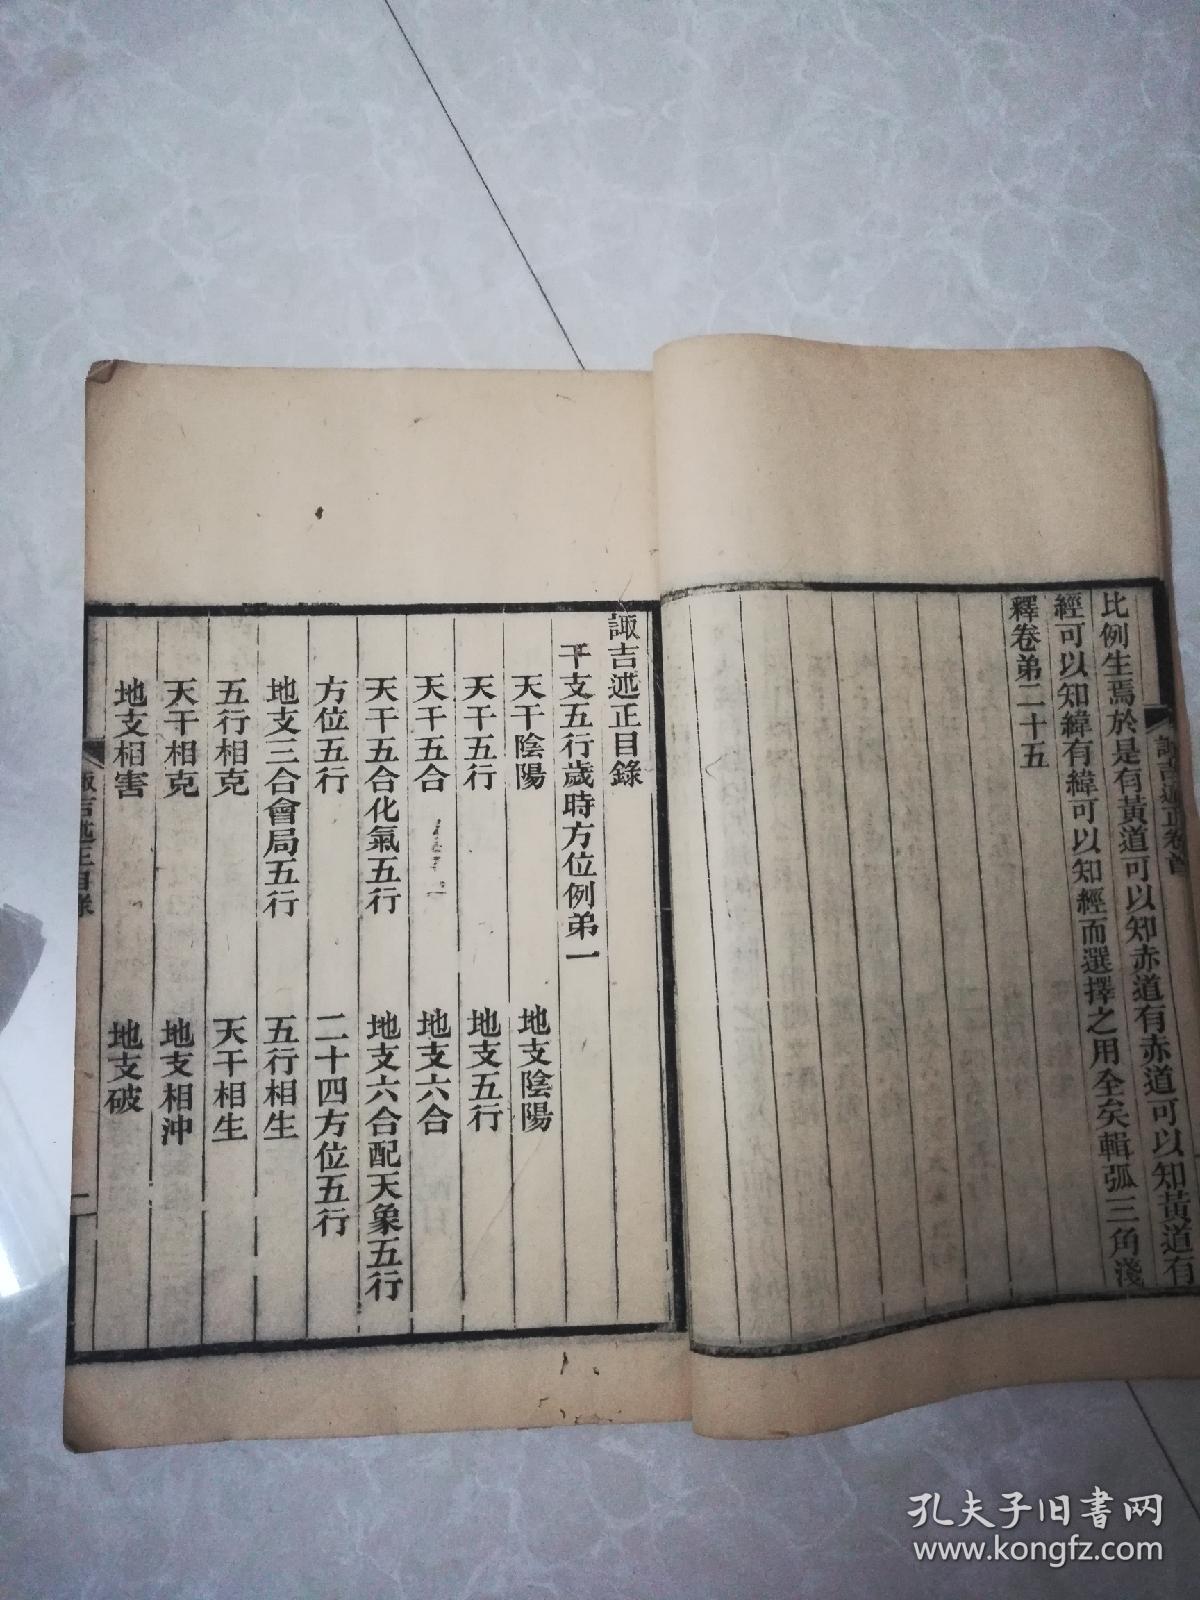 比例生焉於是有黃道可以知赤道有赤道可以知黃道有
經可以知緯有緯可以知經而選擇之用全矣輯弧三角淺
釋卷弟二十五
諏吉述正卷首
諏吉述正目錄
干支五行歲時方位例弟一
天干陰陽 地支陰陽
天干五行 地支五行
天干五合 地支六合
天干五合化氣五行 地支六合配天象五行
方位五行 二十四方位五行
地支三合會局五行 五行相生
五行相克 天干相生
天干相克 地支相沖
地支相害 地支破
諏吉述正目錄
一
孔夫子旧书网
www.kongfz.com